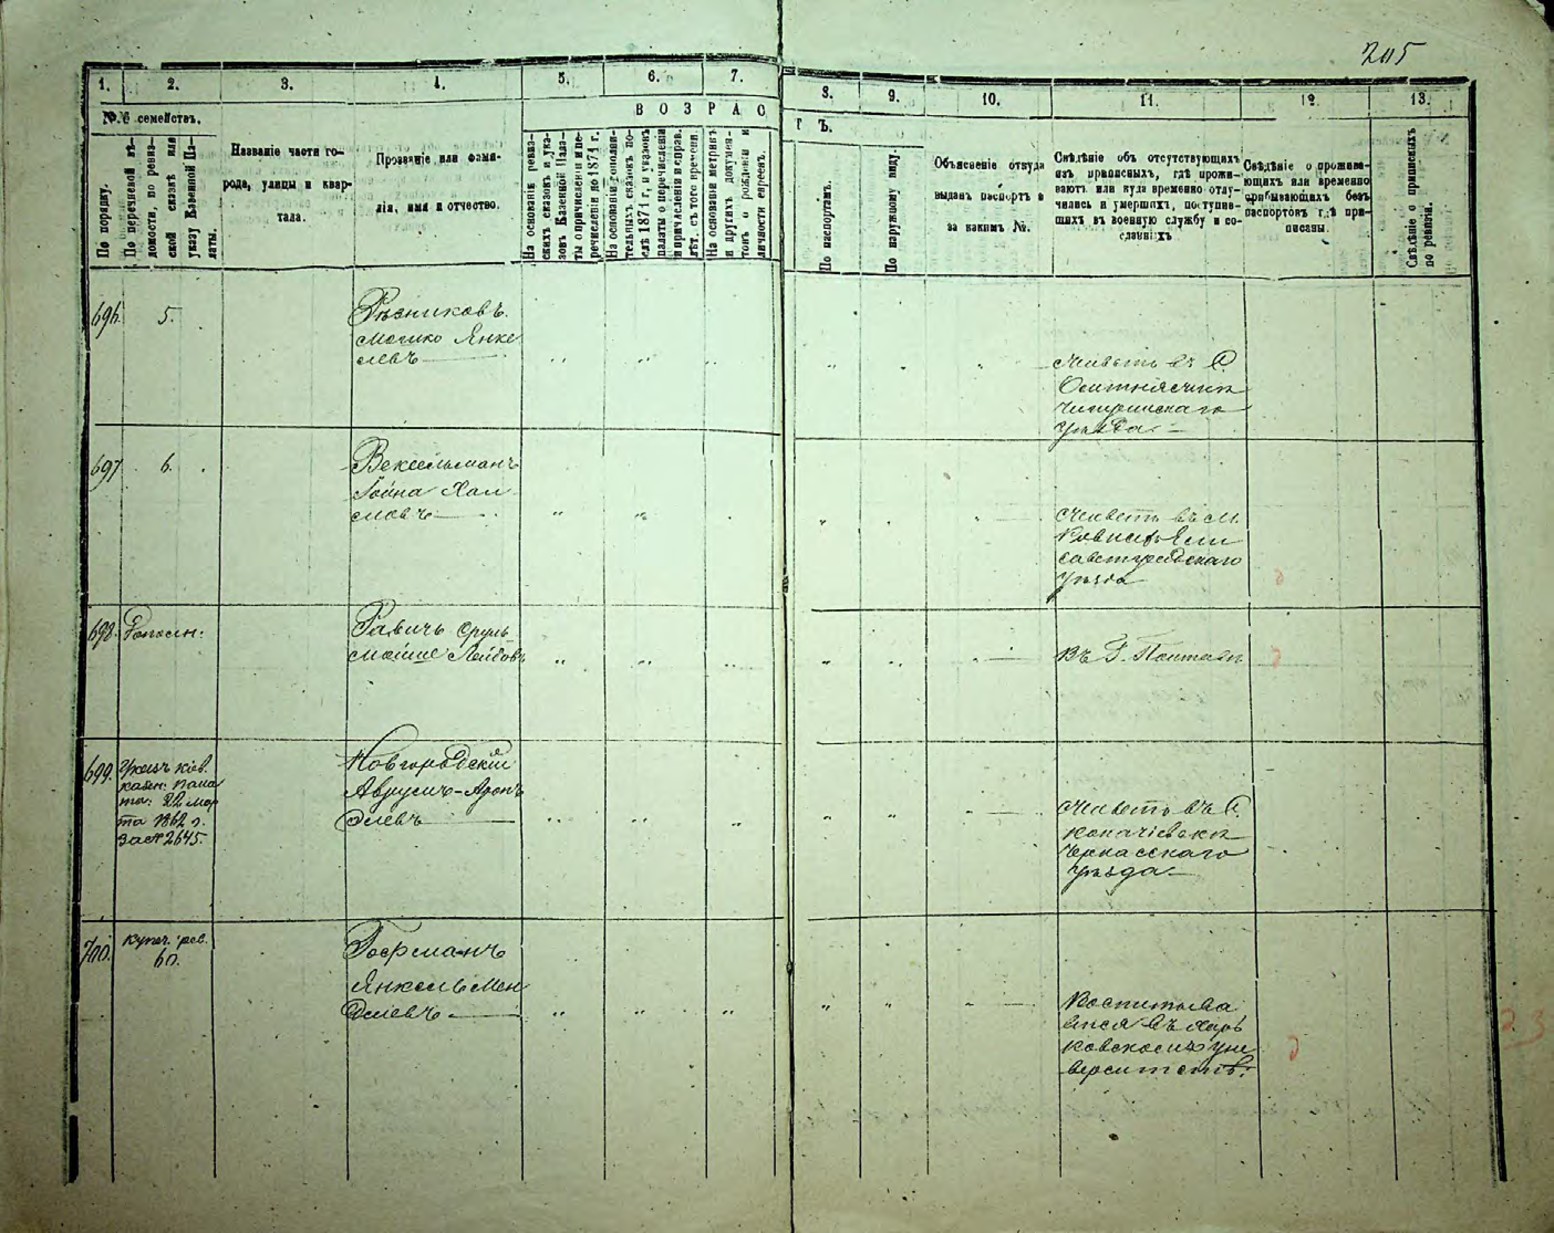 205
1. 2. 3. 4. 5. 6. 7. 8. 9. 10. 11. 12. 13.
№№ семействъ.
В О З Р А С Т Ъ.
По порядку.
По перечневой вѣ-
домости, по ревиз-
ской сказкѣ или
указу Казенной Па-
латы.
Названіе части го-
рода, улицы и квар-
тала.
Прозваніе или фами-
лія, имя и отчество.
На основаніи ревиз-
скихъ сказокъ и ука-
зовъ Казенной Пала-
ты о причисленіи и пе-
речисленіи до 1871 г.
На основаніи дополни-
тельныхъ сказокъ по-
слѣ 1871 г. и указовъ
палаты о перечисленіи
и причисленіи и справ.
лѣт. съ того времени.
На основаніи метрикъ
и другихъ докумен-
товъ о рожденіи и
личности евреевъ.
По паспортамъ.
По наружному виду.
Объясненіе откуда
выданъ паспортъ и
за какимъ №.
Свѣдѣніе объ отсутствующихъ
изъ приписныхъ, гдѣ прожи-
ваютъ или куда временно отлу-
чились и умершихъ, поступив-
шихъ въ военную службу и со-
сланныхъ
Свѣдѣніе о прожива-
ющихъ или временно
прибывающихъ безъ
паспортовъ гдѣ при-
писаны.
Свѣдѣніе о приписныхъ
по ревизіи.
696. 5.
Рѣзниковъ.
Мошко Янке
левъ
Живетъ въ С
Оситняжкѣ
Чигиринскаго
уѣзда
697 6.
Вексельманъ
Хаи
мовъ
Живетъ въ м.
Ели
саветградскаго
уѣзда
698.
Равичъ Сруль
Мойше Лейбовъ
Въ Г. Полтавѣ
699.
Указъ Кіев.
казен: пала
ты: 22 мар
та 1862 г.
за № 2645.
Новгородскій
Аврумъ-Арон
Элевъ
Живетъ въ С.
Черкасскаго
уѣзда
700. Купеч. рев.
60.
Гофманъ
Янкель Мен
делевъ
Воспитыва
ется въ Харь
ковскомъ уни
верситетѣ.
23